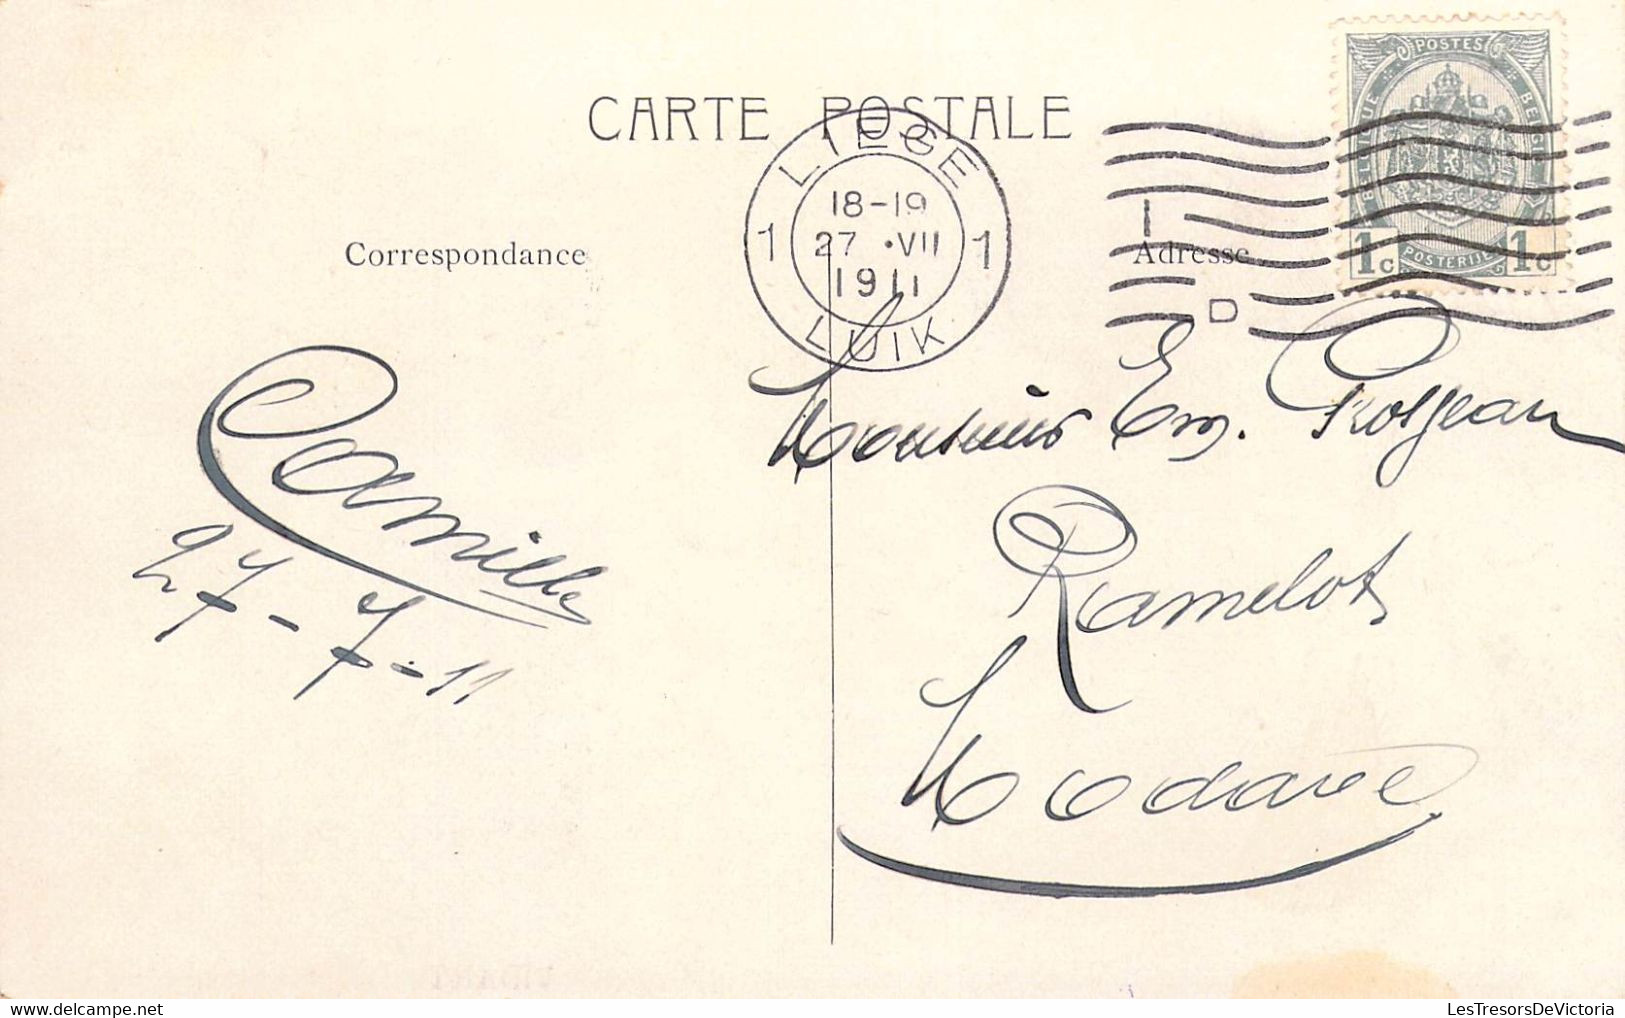 CARTE POSTALE
POSTES
BELGIQUE BELGIË
1c POSTERIJEN 1c
LIEGE
1 18-19 1
27 ·VII
1911
LUIK
I
D
Correspondance
Adresse
Camille
27-7-11
Monsieur Em. Grosjean
Ramelot
Modave
LesTresorsDeVictoria